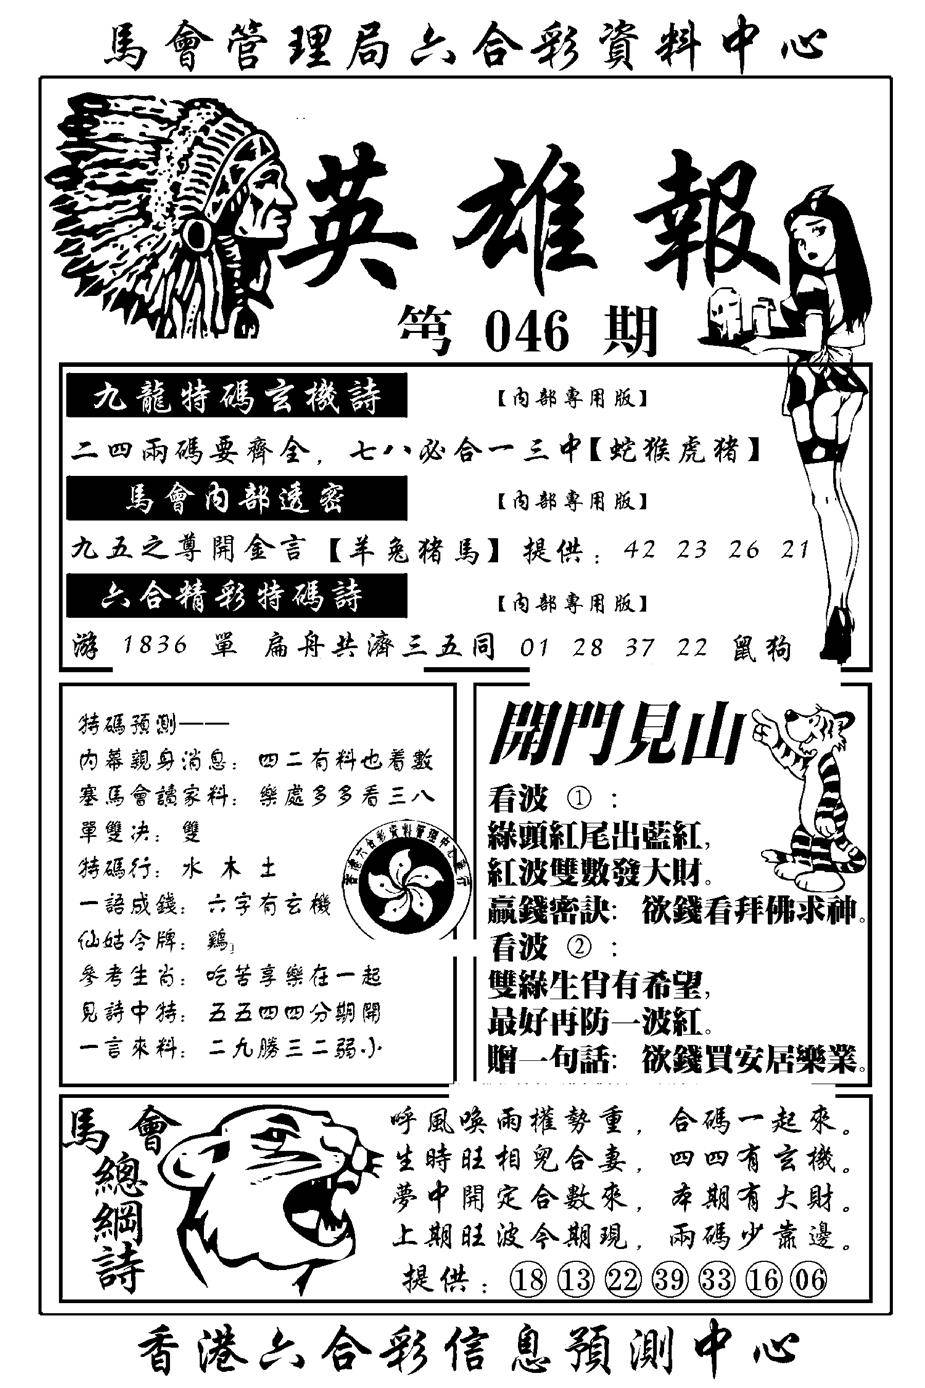 馬會管理局六合彩資料中心
英雄報
第 046 期
九龍特碼玄機詩 【內部專用版】
二四兩碼要齊全，七八必合一三中【蛇猴虎猪】
馬會內部透密 【內部專用版】
九五之尊開金言【羊兔猪馬】提供：42 23 26 21
六合精彩特碼詩 【內部專用版】
游 1836 單 扁舟共濟三五同 01 28 37 22 鼠狗
特碼預測——
內幕親身消息：四二有料也着數
塞馬會讀家料：樂處多多看三八
單雙决：雙
特碼行：水 木 土
一語成錢：六字有玄機
仙姑令牌：鷄
參考生肖：吃苦享樂在一起
見詩中特：五五四四分期開
一言來料：二九勝三二弱小
香港六合彩資料管理中心發行
開門見山
看波 ①：
綠頭紅尾出藍紅，
紅波雙數發大財。
贏錢密訣：欲錢看拜佛求神。
看波 ②：
雙綠生肖有希望，
最好再防一波紅。
贈一句話：欲錢買安居樂業。
馬會
總綱詩
呼風喚雨權勢重，合碼一起來。
生時旺相兒合妻，四四有玄機。
夢中開定合數來，本期有大財。
上期旺波今期現，兩碼少靠邊。
提供：⑱ ⑬ ㉒ ㊴ ㉝ ⑯ 06
香港六合彩信息預測中心